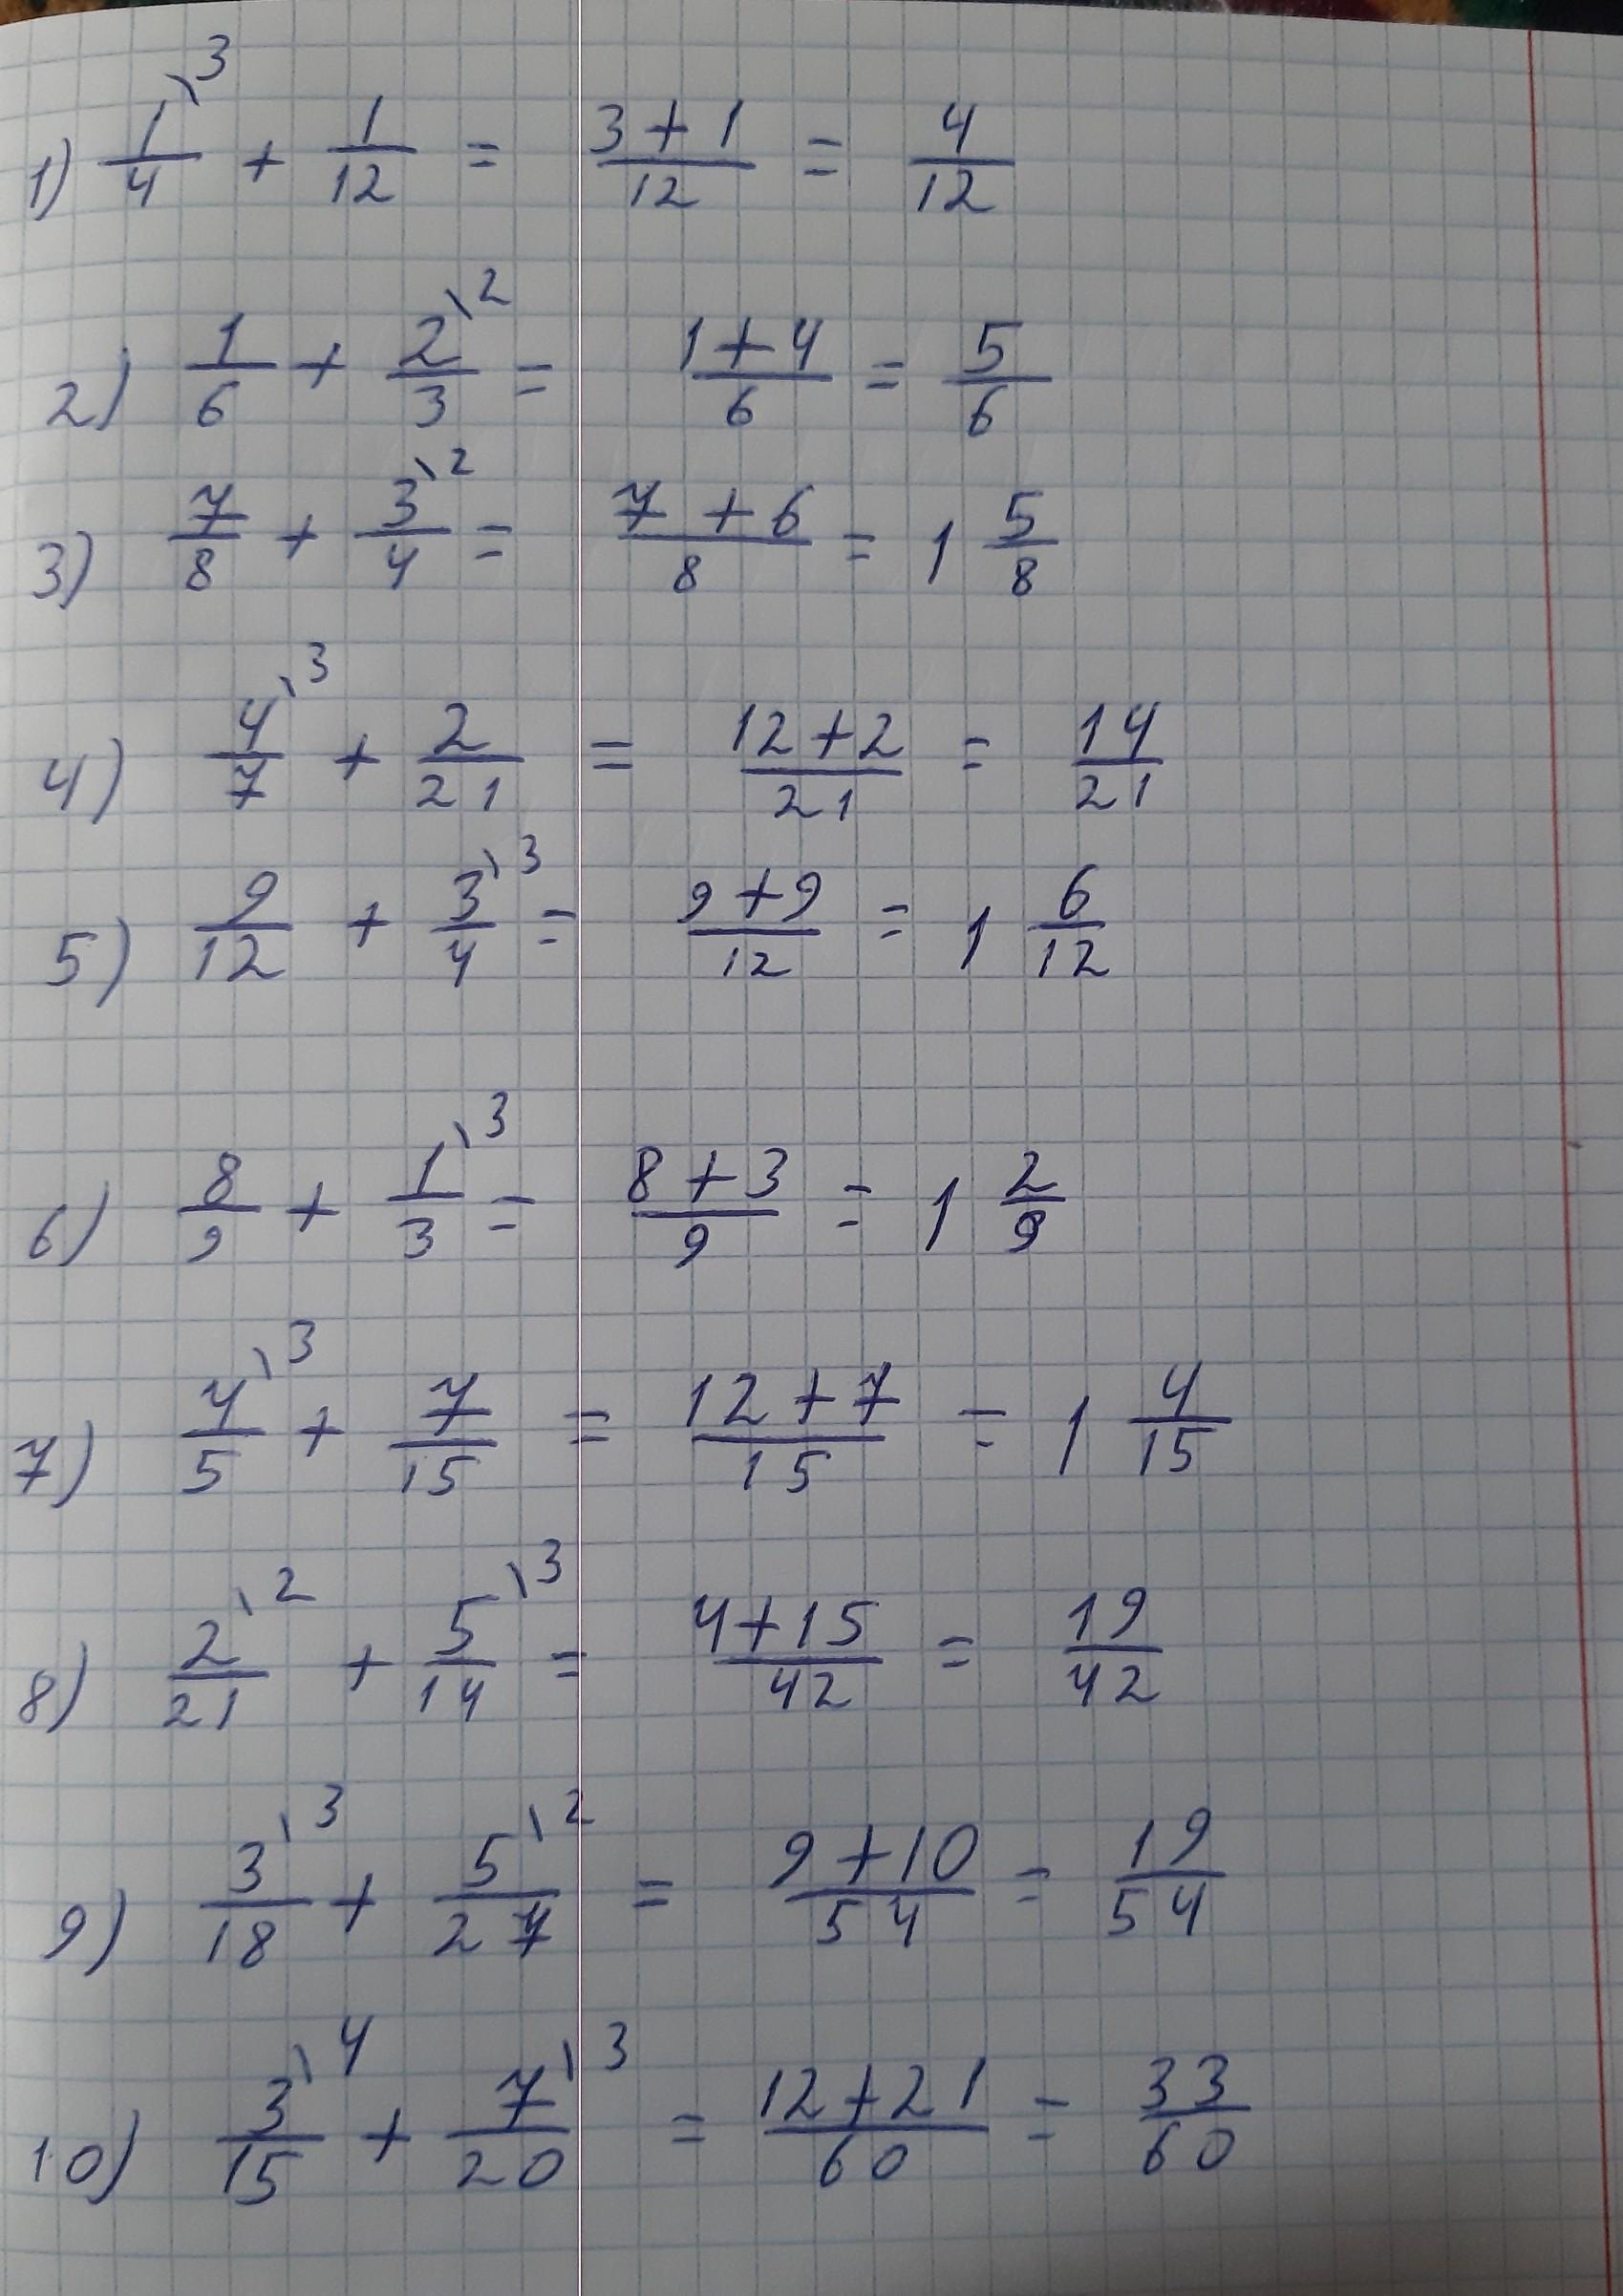 1) 1/4 \3 + 1/12 = 3+1/12 = 4/12
2) 1/6 + 2/3 \2 = 1+4/6 = 5/6
3) 7/8 + 3/4 \2 = 7+6/8 = 1 5/8
4) 4/7 \3 + 2/21 = 12+2/21 = 14/21
5) 9/12 + 3/4 \3 = 9+9/12 = 1 6/12
6) 8/9 + 1/3 \3 = 8+3/9 = 1 2/9
7) 4/5 \3 + 7/15 = 12+7/15 = 1 4/15
8) 2/21 \2 + 5/14 \3 = 4+15/42 = 19/42
9) 3/18 \3 + 5/27 \2 = 9+10/54 = 19/54
10) 3/15 \4 + 7/20 \3 = 12+21/60 = 33/60